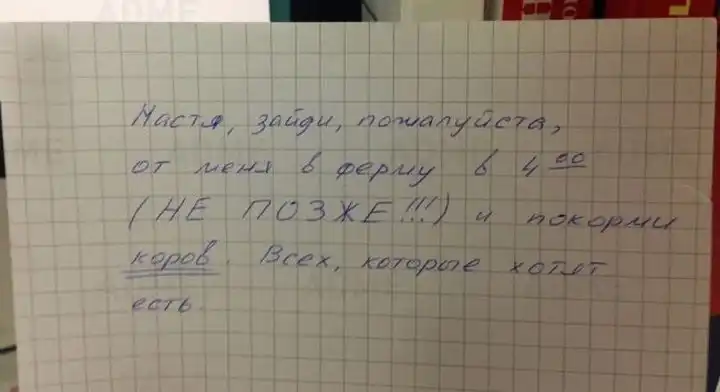 Настя, зайди, пожалуйста,
от меня в ферму в 4 00
(НЕ ПОЗЖЕ!!!) и покорми
коров. Всех, которые хотят
есть.